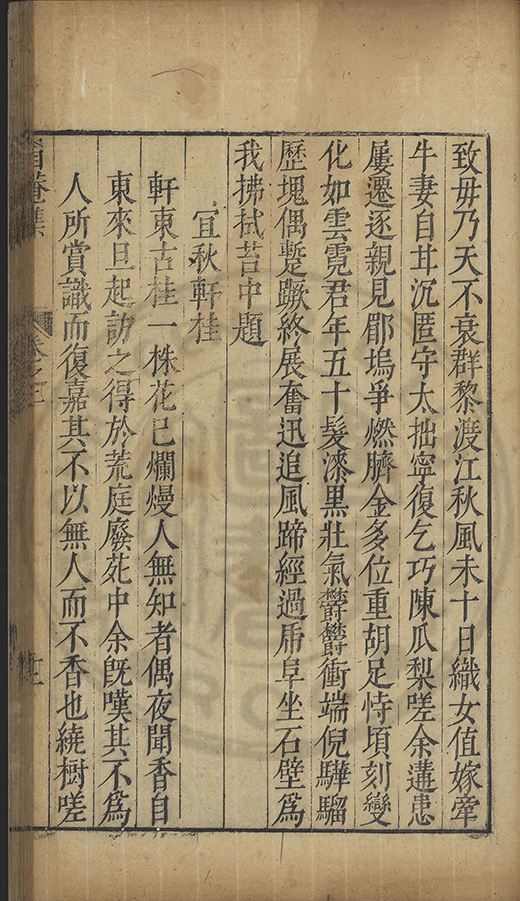 致毋乃天不哀群黎渡江秋風未十日織女值嫁牽
牛妻自甘沉匿守太拙寧復乞巧陳瓜梨嗟余遘患
屢遷逐親見郿塢爭燃臍金多位重胡足恃頃刻變
化如雲霓君年五十髮漆黑壯氣欝欝衝端倪驊騮
歷塊偶蹔蹶終展奮迅追風蹄經過乕阜坐石壁爲
我拂拭苔中題
宜秋軒桂
軒東古桂一株花已爛熳人無知者偶夜聞香自
東來旦起訪之得於荒庭廢𫟍中余旣嘆其不爲
人所賞識而復嘉其不以無人而不香也繞樹嗟
甫菴集
卷之三